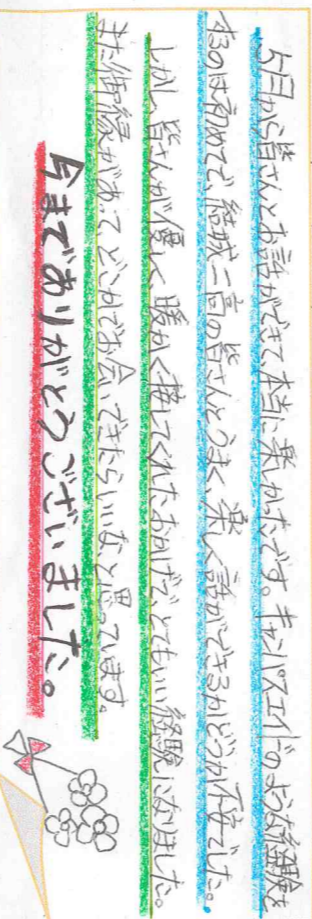 5月から皆さんとお話ができて本当に楽しかったです。キャンパスエイドのような経験を
するのは初めてで、結城二高の皆さんとうまく楽しく話ができるかどうか不安でした。
しかし、皆さんが優しく、暖かく接してくれたおかげで、とてもいい経験になりました。
また御縁があってどこかでお会いできたらいいなと思っています。
今までありがとうございました。